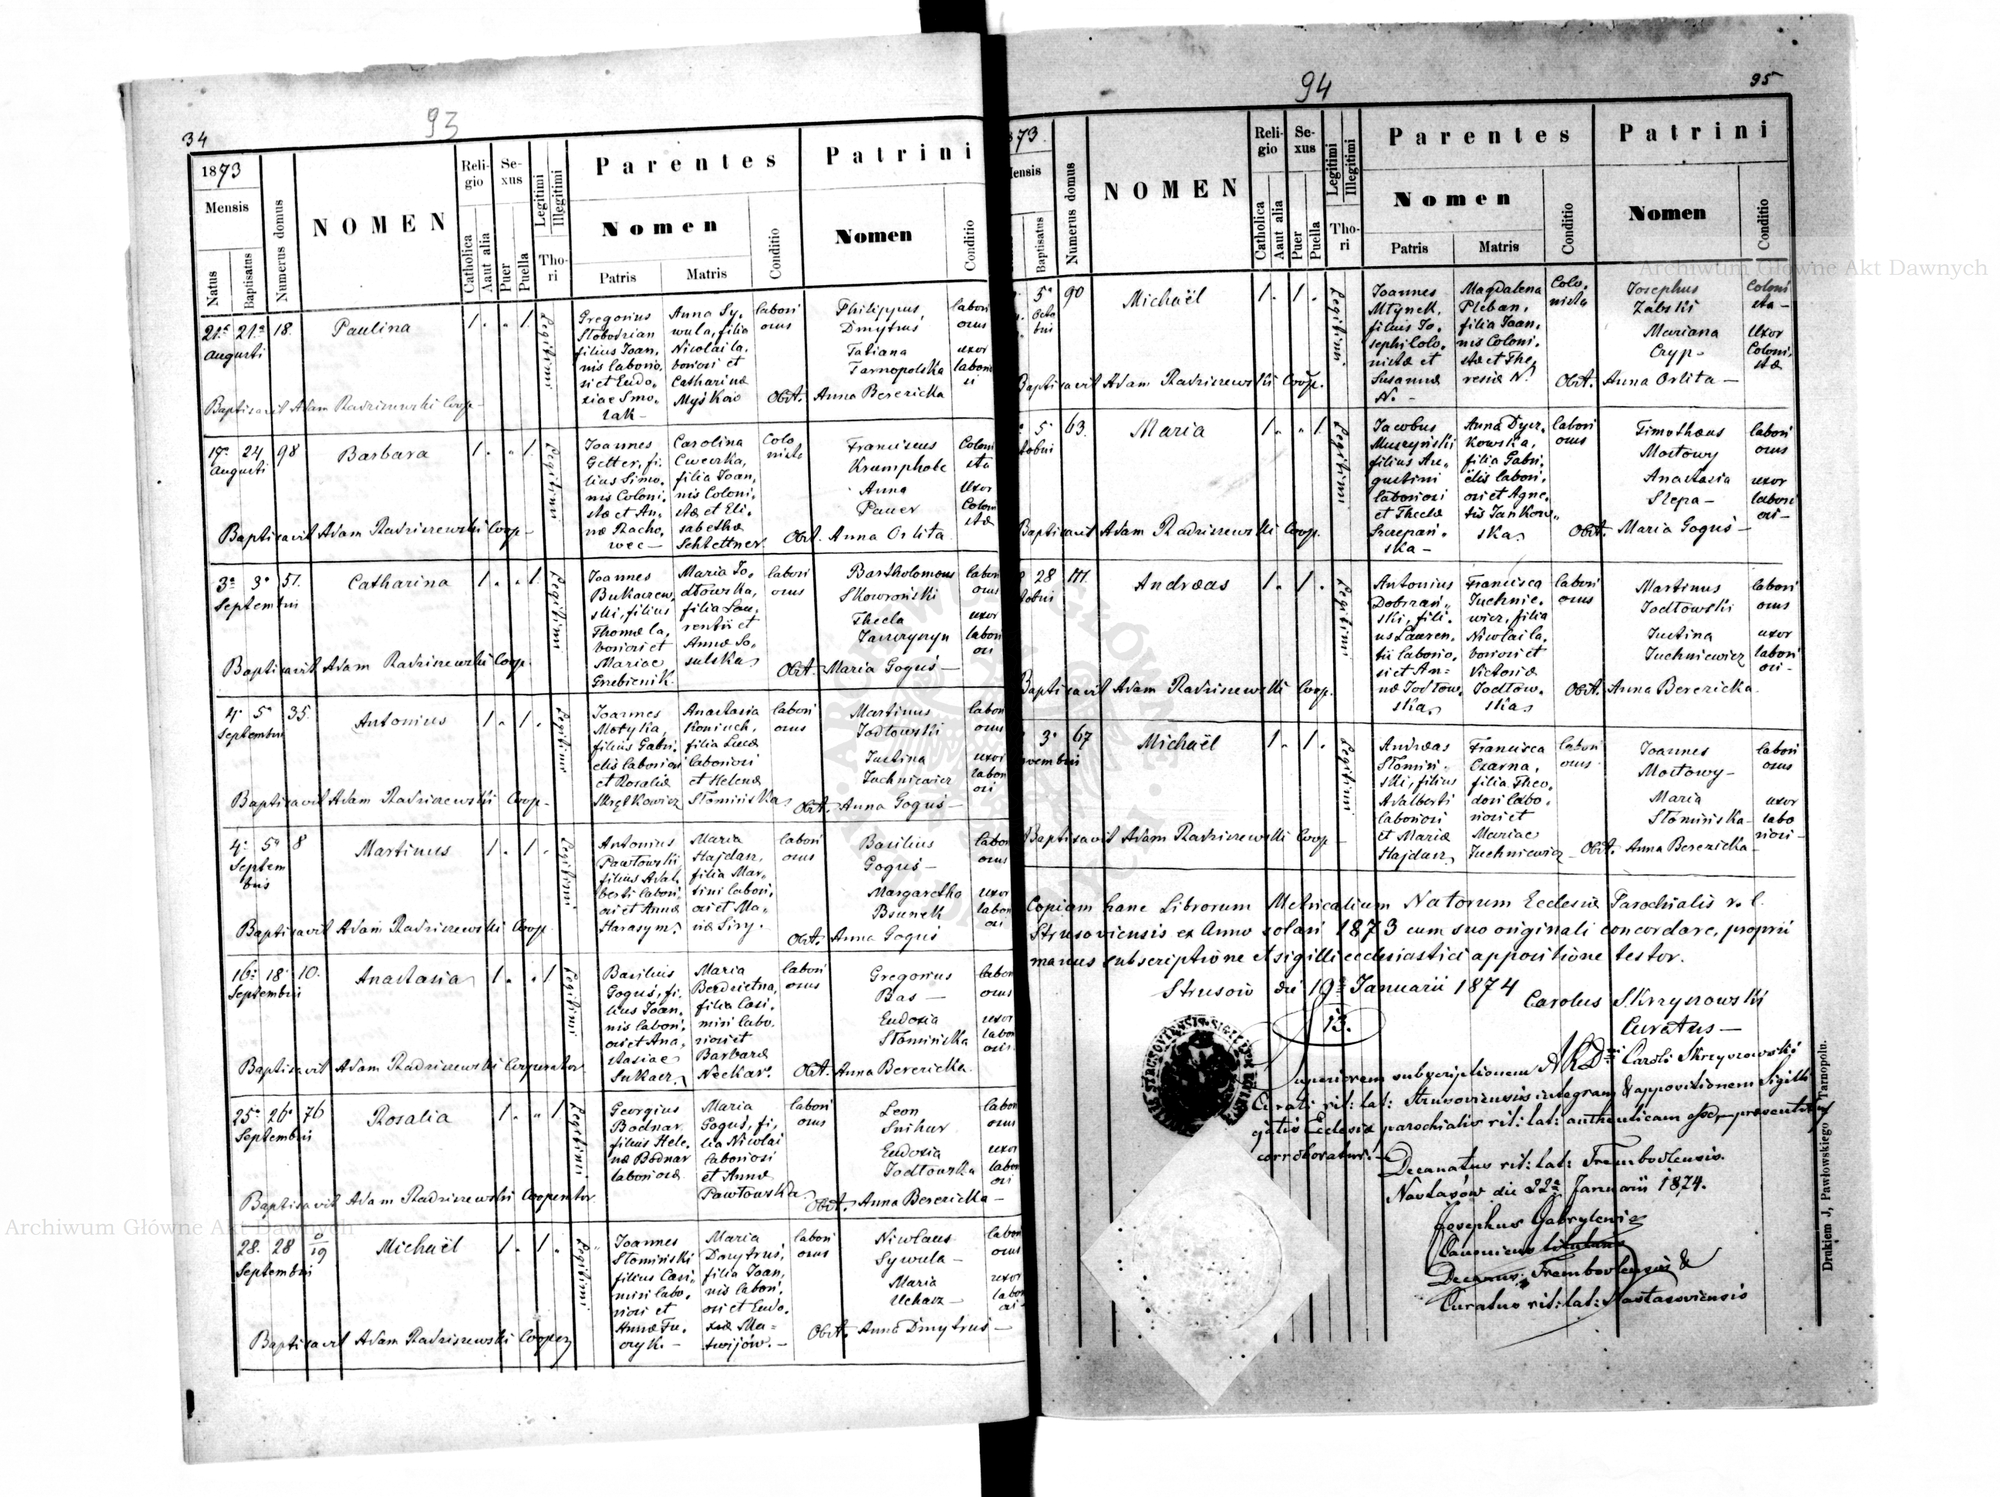 34
93
1873
Mensis
Natus
Baptisatus
Numerus domus
NOMEN
Religio
Catholica
Aaut alia
Sexus
Puer
Puella
Legitimi
Illegitimi
Thori
Parentes
Nomen
Patris
Matris
Conditio
Patrini
Nomen
Conditio
21ª 21ª 18. Paulina 1. „ 1 Legitimi
Augusti
Gregorius
filius Joan,
nis laborio,
si et Eudo,
xiae Smo,
lak —
Anna Sy,
wula, filia
Nicolai la,
boriosi et
Catharinæ
Myśków
labori
osus
Philippus,
Dmytrus
Tatiana
Tarnopolska
labori
osus
uxor
Obst. Anna Berezicka
Baptisavit Adam Radziszewski Coop—
24 98 Barbara 1. „ 1. Legitimi
Augusti
Joannes
Getter, fi,
lius Simo,
nis Coloni,
stæ et An,
næ Racho,
wec —
Carolina
filia Joan,
nis Coloni,
stæ et Eli,
sabethæ
Schlettner.
Colo
nista
Franciscus
Krumpholc
Anna
Pauer
Coloni
sta
Uxor
Coloni
stæ
Obst. Anna Orlita
Baptisavit Adam Radziszewski Coop—
3ª 3ª 51. Catharina 1. „ 1. Legitimi
Septembris
Joannes
Bukaczew,
ski, filius
Thomæ la,
boriosi et
Mariae
Grzebienik.
Maria Jo,
dłowska,
filia Lau,
rentii et
Annæ So,
bulska
labori
osus
Bartholomeus
Skowroński
Thecla
labori
osus
uxor
labori
osi
Obst. Maria Goguś —
Baptisavit Adam Radziszewski Coop.
4. 5ª 35. Antonius 1. „ 1. Legitimus
Septembris
Joannes
Motyka,
filius Gabri,
elis laboriosi
et Rosaliæ
Skrętkowicz
Anastasia
Koniuch,
filia Lucæ
laboriosi
et Helenæ
Słomińska
labori
osus
Martinus
Jodłowski
Justina
Juchniewicz
labori
osus
uxor
labori
osi
Obst. Anna Goguś —
Baptisavit Adam Radziszewski Coop—
4ª 5ª 8 Martinus 1. „ 1. Legitimi
Septem
bris
Antonius
Pawłowski
filius Adal,
berti labori,
osi et Annæ
Harasym.
Maria
Hajdasz,
filia Mar,
tini labori,
osi et Ma,
riæ Siry.
labori
osus
Basilius
Goguś —
Margaretha
labori
osus
uxor
labori
osi
Obst. Anna Goguś
Baptisavit Adam Radziszewski Coop.
16ª 18ª 10. Anastasia 1. „ 1 Legitimi
Septembris
Basilius
Goguś, fi,
lius Joan,
nis labori,
osi et Ana,
stasiae
Maria
filia Casi,
miri labo,
riosi et
Barbaræ
labori
osus
Gregorius
Bas —
Eudoxia
Słomińska
labori
osus
uxor
Obst. Anna Berezicka.
Baptisavit Adam Radziszewski Cooperator
25ª 26ª 76 Rosalia 1. „ 1 Legitimi
Septembris
Georgius
Bodnar
filius Hele,
næ Bodnar
laboriosæ
Maria
Goguś, fi,
lia Nicolai
laboriosi
et Annæ
Pawłowska
labori
osus
Leon
Snihur
Eudoxia
Jodłowska
labori
osus
uxor
labori
osi
Obst. Anna Berezicka —
Baptisavit Adam Radziszewski Cooperator.
28. 28 Michaël 1. „ 1. Legitimi
Septembris
Joannes
Słomiński
filius Casi,
miri labo,
riosi et
Maria
Dmytrus,
filia Joan,
nis labori,
osi et Eudo,
xiæ Ma—
twijów. —
labori
osus
Nicolaus
Sywula —
Maria
Uchacz —
labori
osus
uxor
labori
osi
Obst. Anna Dmytrus —
Baptisavit Adam Radziszewski Cooper
94
95
73.
Mensis
Baptisatus
Numerus domus
NOMEN
Religio
Catholica
Aaut alia
Sexus
Puer
Puella
Legitimi
Illegitimi
Thori
Parentes
Nomen
Patris
Matris
Conditio
Patrini
Nomen
Conditio
5ª 90 Michaël 1. 1. Legitimi
Octo
bris
Joannes
Młynek,
filius Jo,
sephi Colo,
nistæ et
Susannæ
N. —
Magdalena
Pleban,
filia Joan,
nis Coloni,
stæ et The,
resiæ N.
Colo,
nista
Josephus
Zabski
Mariana
Cryp—
Coloni
sta —
Uxor
Coloni,
stæ
Obst. Anna Orlita —
Baptisavit Adam Radziszewski Coop.
5 63. Maria 1. „ 1. Legitimi
Jacobus
Muszyński
filius Au,
gustini
laboriosi
et Theclæ
Szczepań,
ska —
Anna Dycz,
kowska,
filia Gabri,
ëlis labori,
osi et Agne,
tis Jankow,
ska
labori
osus
Timotheus
Mostowy
Anastasia
Slepa —
labori
osus
uxor
labori
osi —
Obst. Maria Goguś —
Baptisavit Adam Radziszewski Coop.
28 111. Andreas 1. 1. Legitimi
Antonius
Dobrzań,
ski, fili,
us Lauren,
tii laborio,
si et An=
næ Jodłow,
ska
Francisca
Juchnie,
wicz, filia
Nicolai la,
boriosi et
Victoriæ
Jodłow,
ska
labori
osus
Martinus
Jodłowski
Justina
Juchniewicz
labori
osus
uxor
labori
osi —
Obst. Anna Berezicka.
Baptisavit Adam Radziszewski Coop.
3ª 67 Michaël 1. 1. Legitimi
Andreas
Słomiń,
ski, filius
Adalberti
laboriosi
et Mariæ
Hajdasz
Francisca
Czarna,
filia Theo,
dori labo,
riosi et
Mariae
Juchniewicz
labori
osus
Joannes
Mostowy —
Maria
Słomińska
labori
osus
uxor
labo
riosi —
Obst. Anna Berezicka —
Baptisavit Adam Radziszewski Coop —
Copiam hanc Librorum Metricalium Natorum Ecclesiæ Parochialis r. l.
Strusoviensis ex Anno solari 1873 cum suo originali concordare, proprii
manus subscriptione et sigilli ecclesiastici appositione testor.
Strusów die 19ª Januarii 1874
Carolus Skrzyszowski
Curatus —
13.
Superiorem subscriptionem ARDni Caroli Skrzyszowski
Curati rit: lat: Strusoviensis integram & appositionem Sigilli
Ecclesiæ parochialis rit: lat: authenticam esse præsentibus
corroboratur. —
Decanatus rit: lat: Trembovlensis.
Nastasów die 22ª Januarii 1874.
Josephus Gabrylewicz
Canonicus titularis
Decanus Trembovlensis &
Curatus rit: lat: Nastasoviensis
Drukiem J. Pawłowskiego w Tarnopolu.
Archiwum Główne Akt Dawnych
Archiwum Główne Akt Dawnych